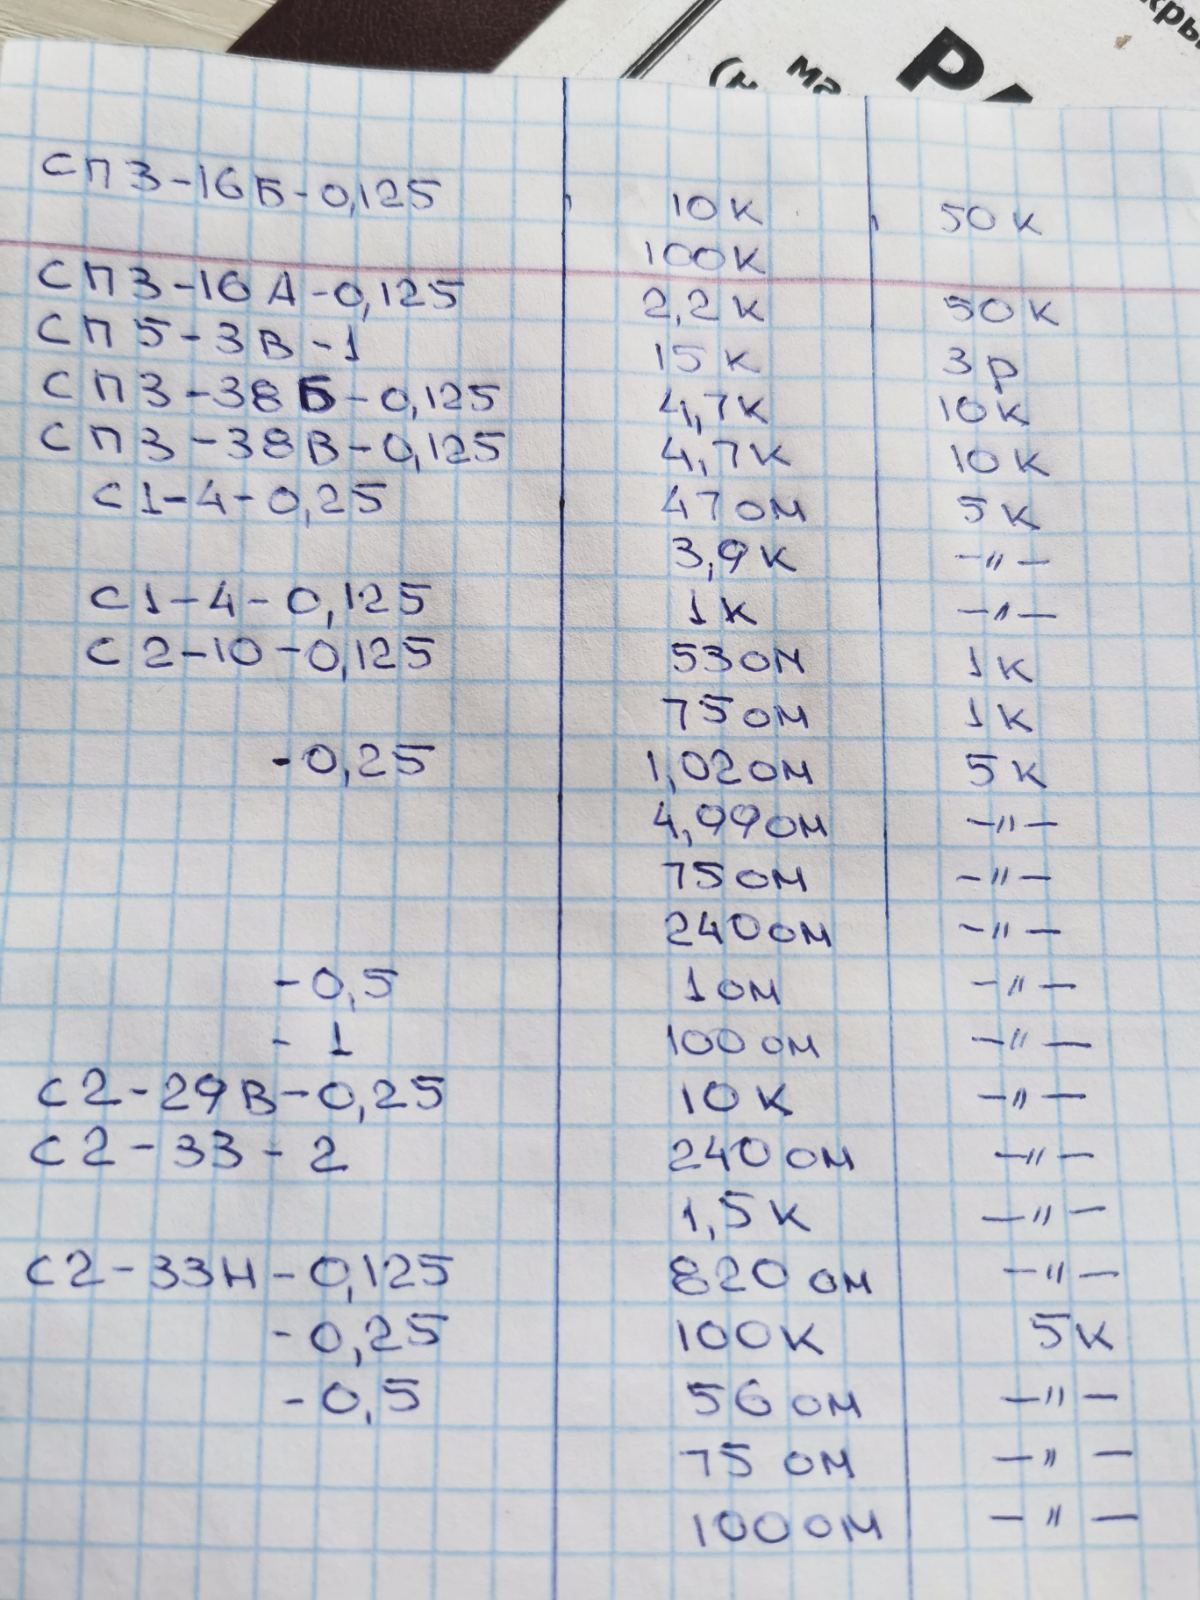 кры
(н ма РА
СП3-16Б-0,125 10к 50к
100к
СП3-16А-0,125 2,2к 50к
СП5-3В-1 15к 3р
СП3-38Б-0,125 4,7к 10к
СП3-38В-0,125 4,7к 10к
С1-4-0,25 47ом 5к
3,9к -"-
С1-4-0,125 1к -"-
С2-10-0,125 53ом 1к
75ом 1к
-0,25 1,02ом 5к
4,99ом -"-
75ом -"-
240ом -"-
-0,5 1ом -"-
-1 100ом -"-
С2-29В-0,25 10к -"-
С2-33-2 240ом -"-
1,5к -"-
С2-33Н-0,125 820ом -"-
-0,25 100к 5к
-0,5 56ом -"-
75ом -"-
100ом -"-